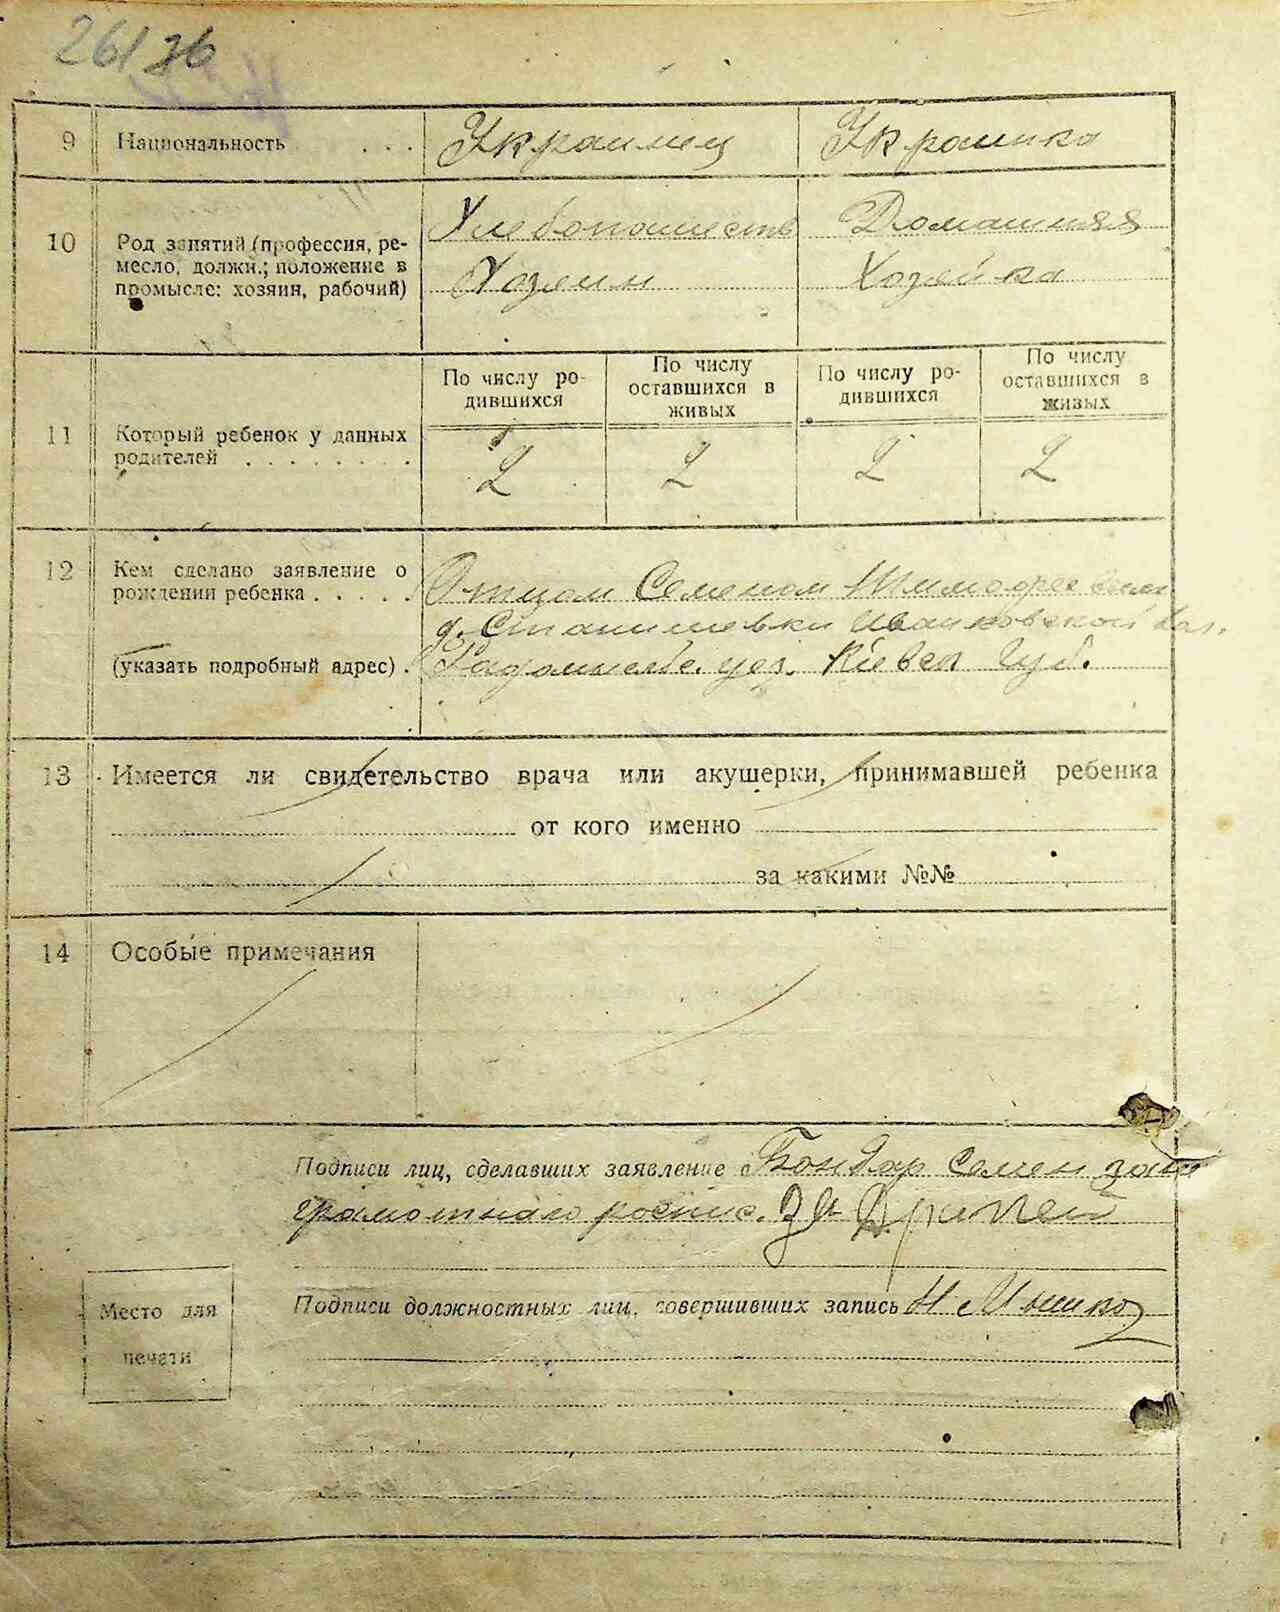 261 36
9 Национальность . . . Украинец Украинка
10 Род занятий (профессия, ре-
месло, должн.; положение в
промысле: хозяин, рабочий)
Хлебопашеств Домашняя
Хозяин Хозяйка
11 Который ребенок у данных
родителей . . . . . . . .
По числу ро-
дившихся
По числу
оставшихся в
живых
По числу ро-
дившихся
По числу
оставшихся в
живых
2 2 2 2
12 Кем сделано заявление о
рождении ребенка . . . . .
(указать подробный адрес) .
Отцом Семеном
д. Станишевки Иванковской Вол.
Радомысльс. уез. Киевск Губ.
13 Имеется ли свидетельство врача или акушерки, принимавшей ребенка
от кого именно
за какими №№
14 Особые примечания
Подписи лиц, сделавших заявление Бондар Семен за не
грамотного роспис.
Место для
печати
Подписи должностных лиц, совершивших запись